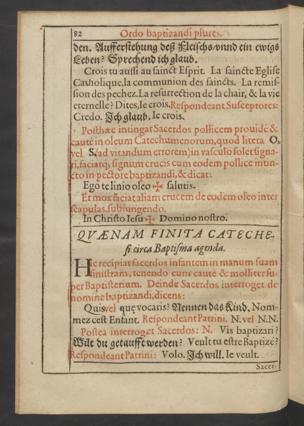 82 Ordo baptizandi plures.
den. Aufferstehung deß Fleischs/vnnd ein ewigs
Leben? Sprechend ich glaub.
Crois tu aussi au sainct Esprit. La saincte Eglise
Catholique, la communion des saincts. La remis-
sion des pechez. La resurrection de la chair, & la vie
eternelle? Dites, Ie crois. Respondeant Susceptores:
Credo. Jch glaub. Ie crois.
Posthæc intingat Sacerdos pollicem prouidè &
cautè in oleum Catechumenorum, quod litera O,
vel S. (ad vitandum errorem) in vasculo solet signa-
ri, faciatq́; signum crucis cum eodem pollice inun-
cto in pectore baptizandi, & dicat:
Egō te linio oleo ✠ salutis.
Et mox faciat aliam crucem de eodem oleo inter
scapulas, subiungendo.
In Christo Iesu ✠ Domino nostro.
QVÆNAM FINITA CATECHE-
si circa Baptisma agenda.
Hic recipiat sacerdos infantem in manum suam
sinistram, tenendo eum cautè & molliter su-
per Baptisterium. Deinde Sacerdos interroget de
nomine baptizandi, dicens:
Quis vel quę vocaris? Nennen das Kind. Nom-
mez cest Enfant. Respondeant Patrini. N. vel N.N.
Postea interroget Sacerdos: N. Vis baptizari?
Wilt du getaufft werden? Veult tu estre Baptizé?
Respondeant Patrini: Volo. Jch will. Ie veult.
Sacer-